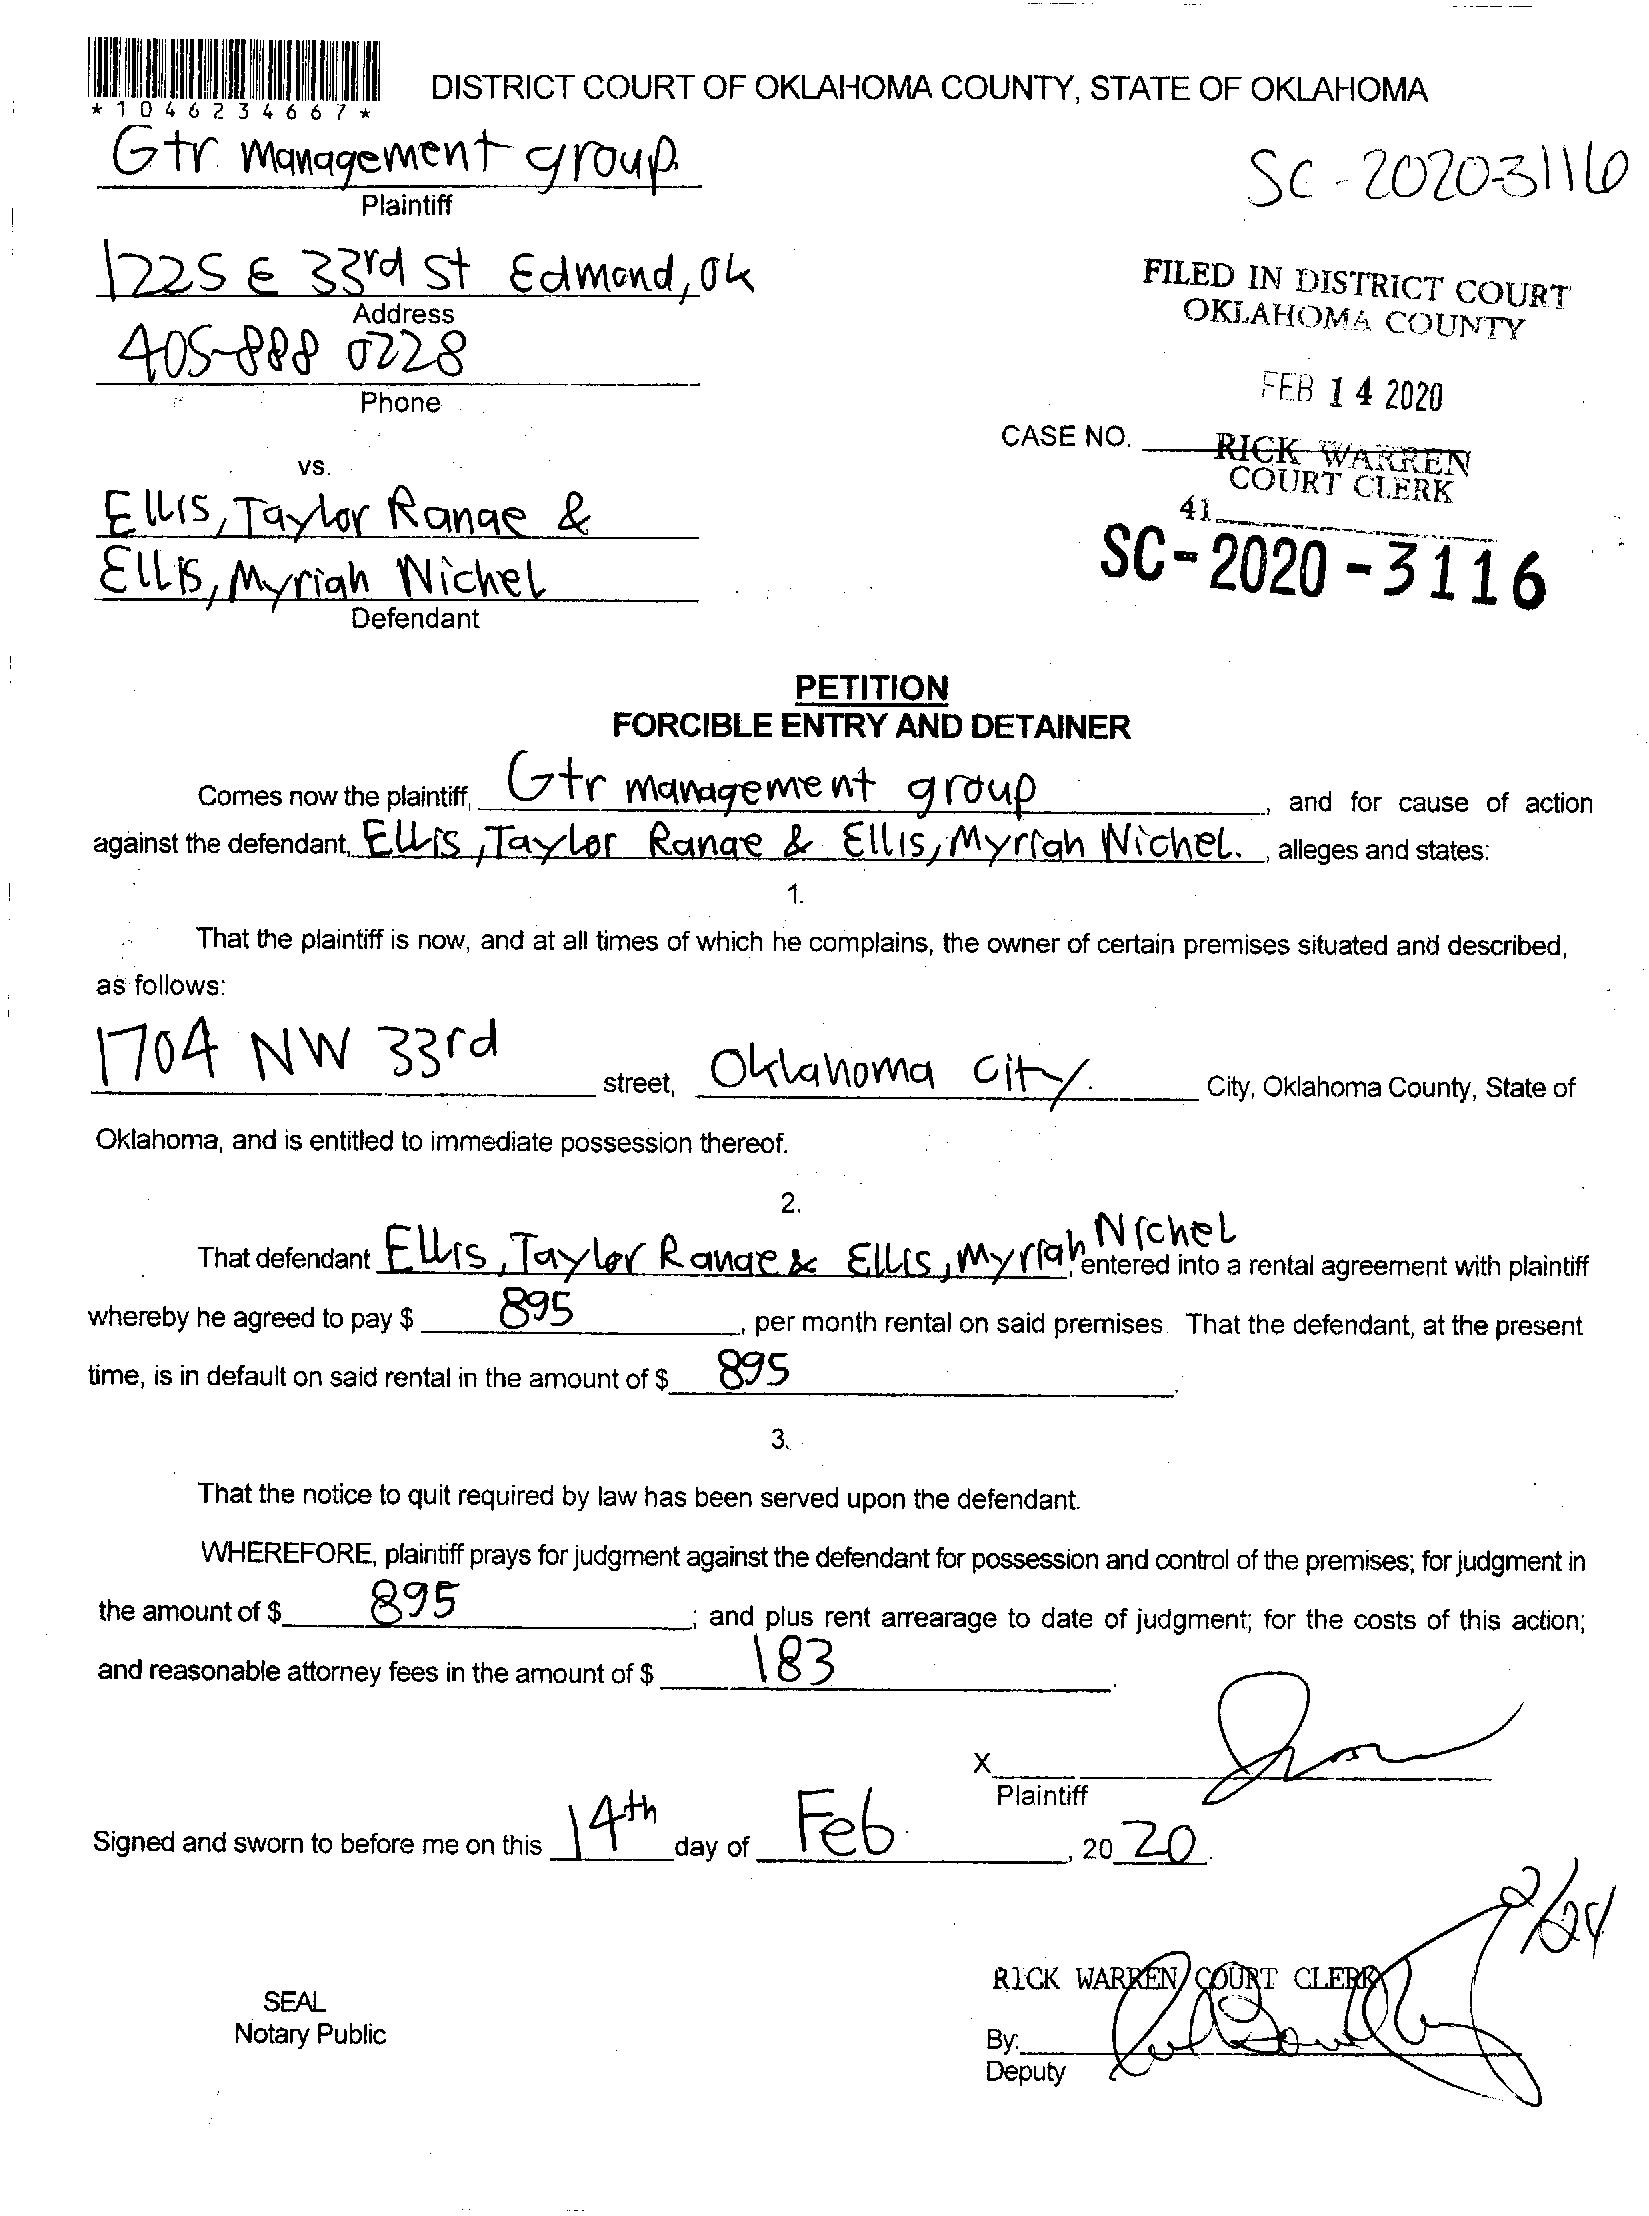 *1046234667*
DISTRICT COURT OF OKLAHOMA COUNTY, STATE OF OKLAHOMA
Gtr management group
Plaintiff
SC-2020-3116
1225 E 33rd St Edmond, Ok
Address
405-888 0228
Phone
FILED IN DISTRICT COURT
OKLAHOMA COUNTY
FEB 14 2020
CASE NO.
RICK WARREN
COURT CLERK
41
SC-2020-3116
vs.
Ellis, Taylor Range &
Ellis, Myriah Nichel
Defendant
PETITION
FORCIBLE ENTRY AND DETAINER
Comes now the plaintiff, Gtr management group, and for cause of action
against the defendant, Ellis, Taylor Range & Ellis, Myriah Nichel., alleges and states:
1.
That the plaintiff is now, and at all times of which he complains, the owner of certain premises situated and described,
as follows:
1704 NW 33rd street, Oklahoma city. City, Oklahoma County, State of
Oklahoma, and is entitled to immediate possession thereof.
2.
That defendant Ellis, Taylor Range & Ellis, Myriah Nichel, entered into a rental agreement with plaintiff
whereby he agreed to pay $ 895, per month rental on said premises. That the defendant, at the present
time, is in default on said rental in the amount of $ 895.
3.
That the notice to quit required by law has been served upon the defendant.
WHEREFORE, plaintiff prays for judgment against the defendant for possession and control of the premises; for judgment in
the amount of $ 895; and plus rent arrearage to date of judgment; for the costs of this action;
and reasonable attorney fees in the amount of $ 183.
X
Plaintiff
Signed and sworn to before me on this 14th day of Feb, 2020.
2/24
RICK WARREN COURT CLERK
SEAL
Notary Public
By:
Deputy